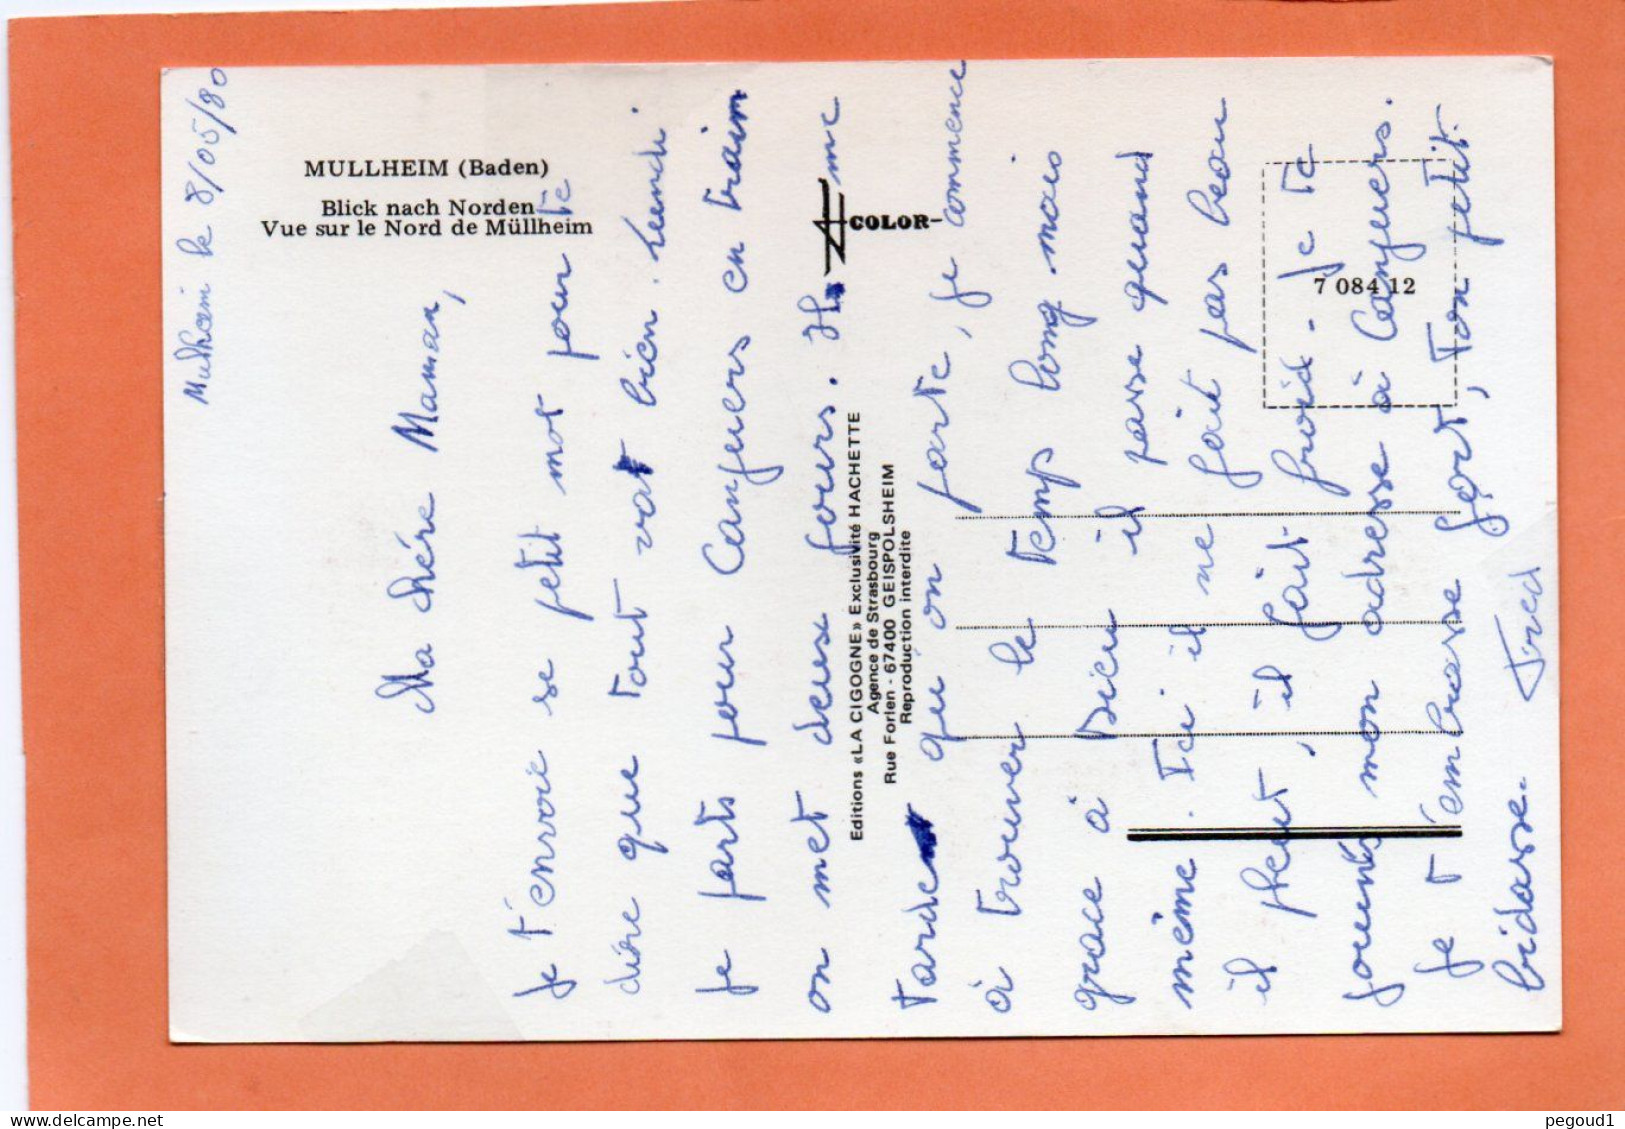 MULLHEIM (Baden)
Blick nach Norden
Vue sur le Nord de Müllheim
COLOR
7 084 12
Editions «LA CIGOGNE» Exclusivité HACHETTE
Agence de Strasbourg
Rue Forlen - 67400 GEISPOLSHEIM
Reproduction interdite
Mulheim le 8/05/80
Ma chére Maman,
je t'envoie se petit mot pour te
dire que tout vat bien. Lundi
je parts pour Canjuers en train
on met deux jours. Il me
tarde qu'on parte, je commence
à trouver le temp long mais
grace à Dieu il passe quand
même. Ici il ne fait pas beau
il pleut, il fait froid - Je te
fournis mon adresse à Canjuers.
je t'embrasse fort, ton petit
bidasse. Fred
pegoud1